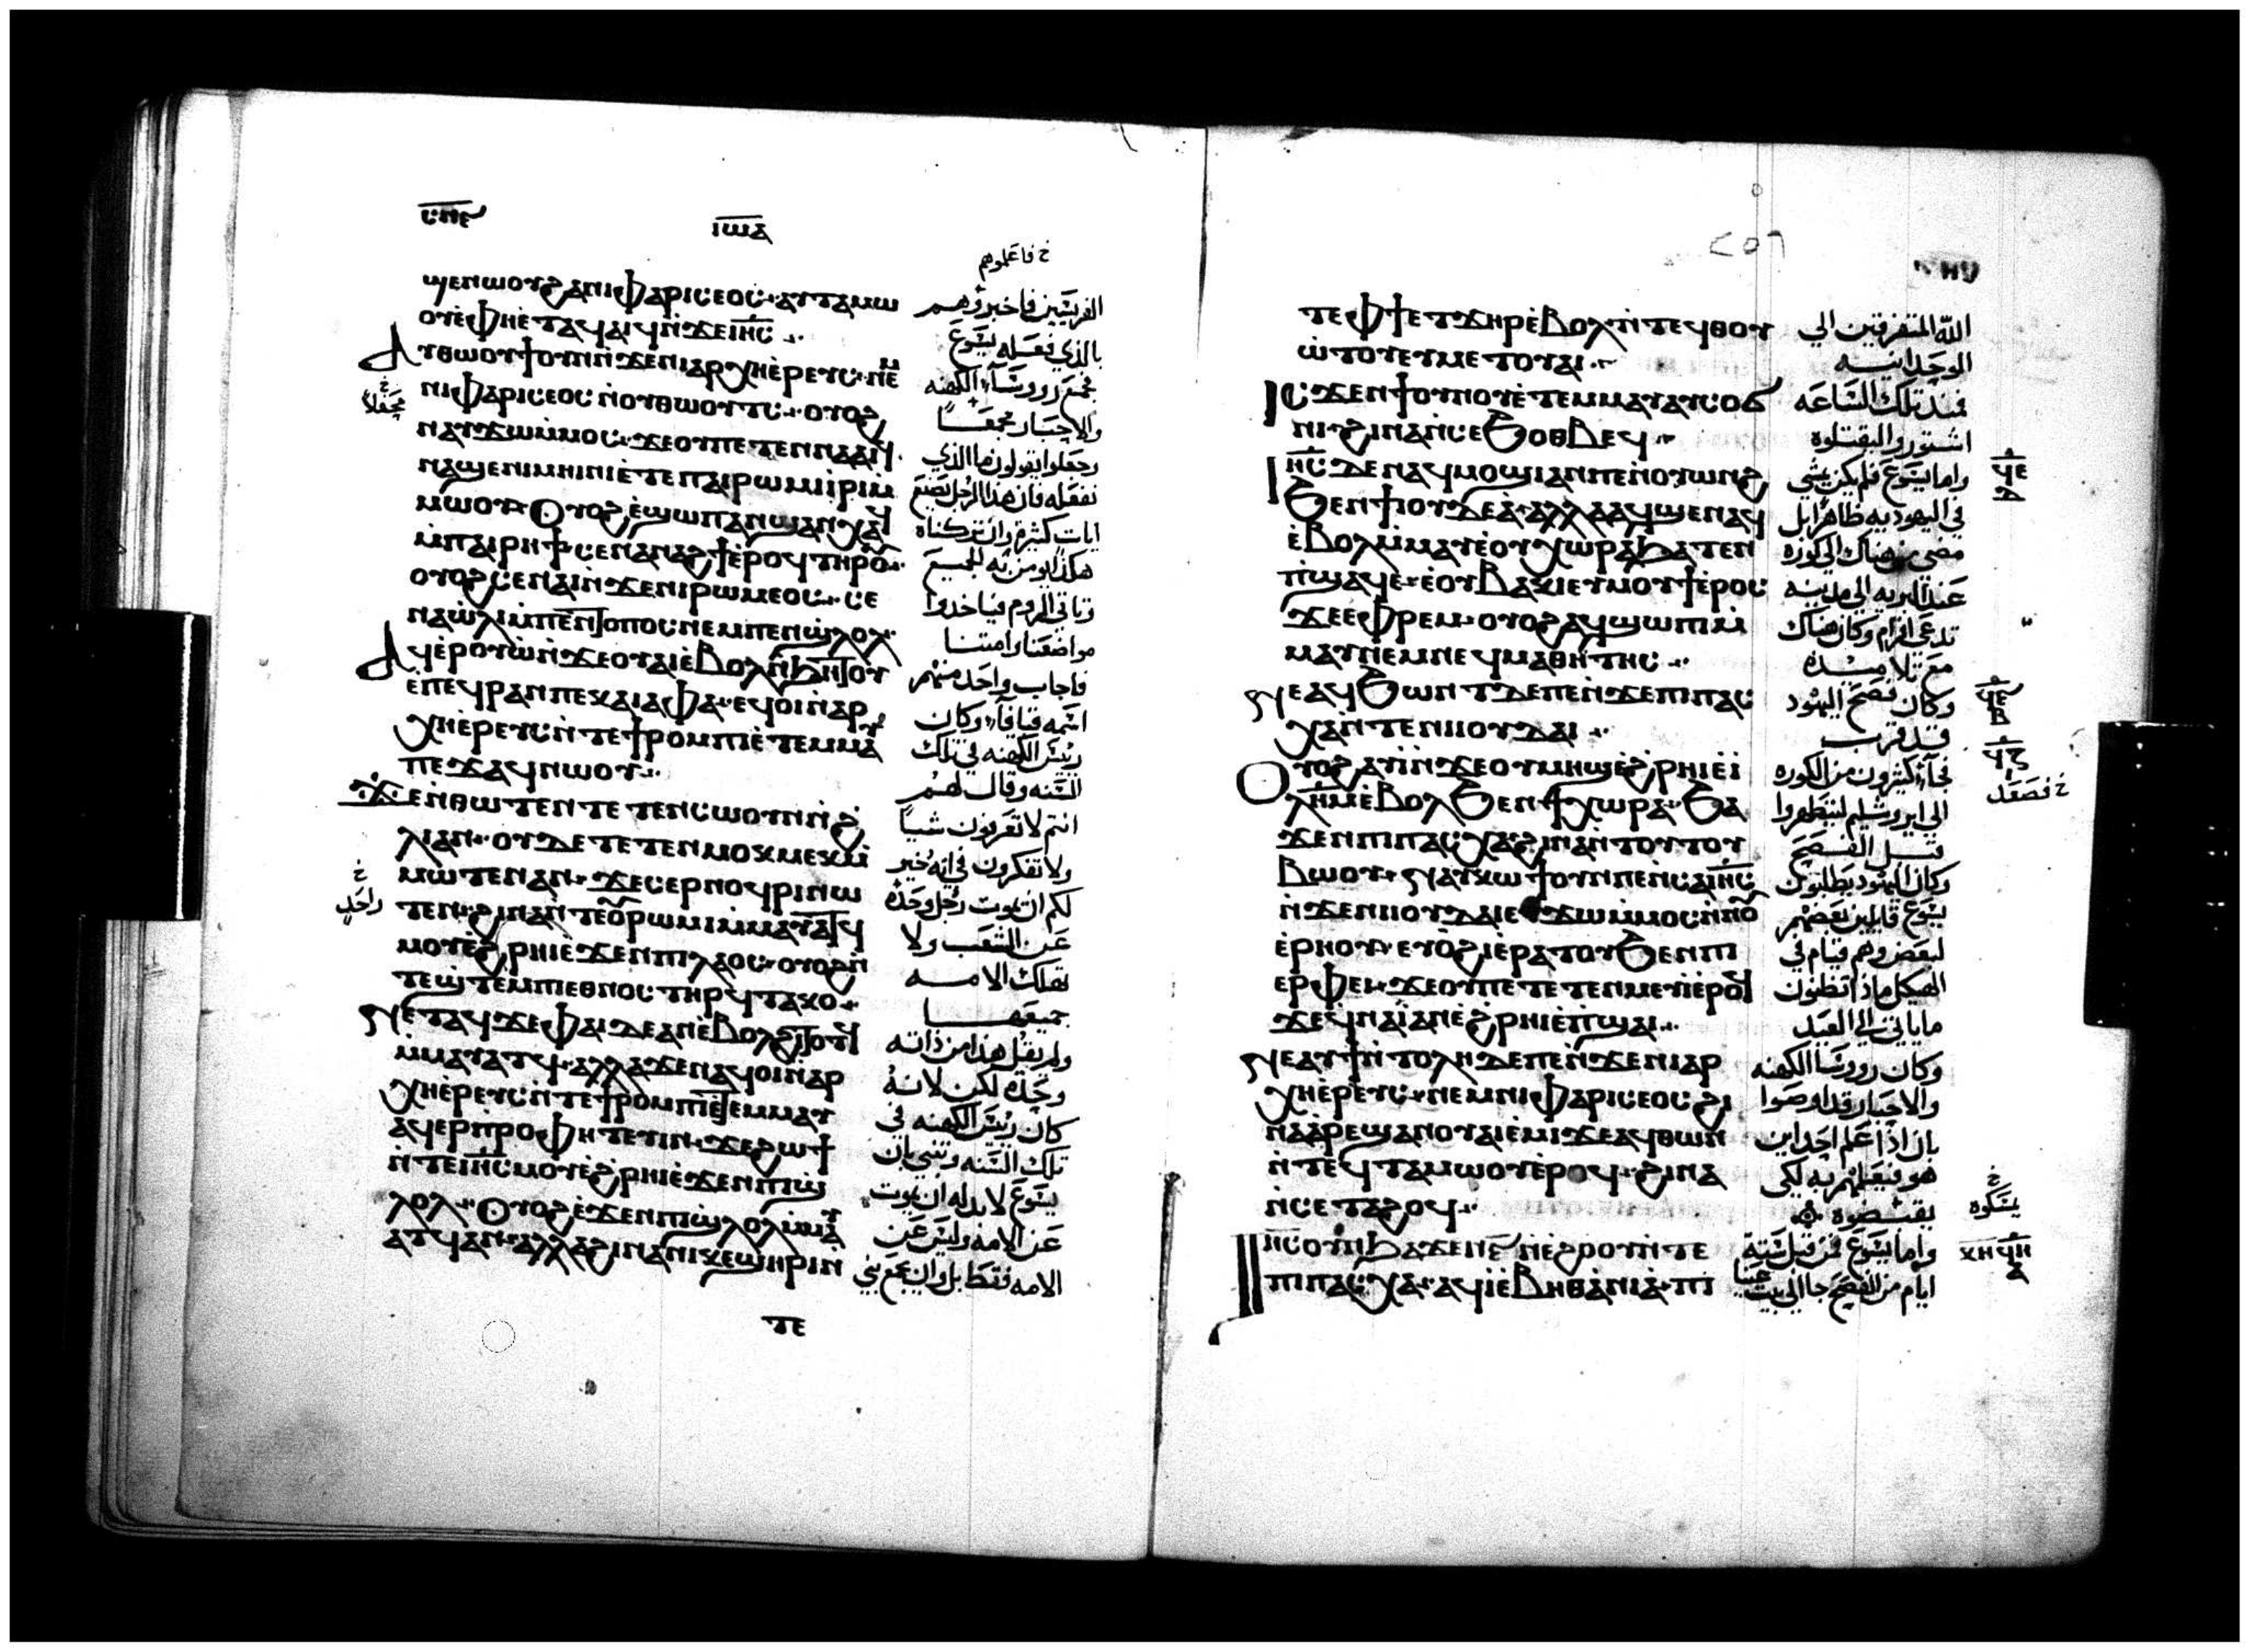 ⲥⲛⲉ
ⲓⲱⲁ
ϣⲉⲛⲱⲟⲩϩⲁⲛⲓⲫⲁⲣⲓⲥⲉⲟⲥ·ⲁⲩⲧⲁⲙⲱ
ⲟⲩⲉ̀ⲫⲏⲉ̀ⲧⲁϥⲁⲓϥⲛ̀ϫⲉⲓⲏ̅ⲥ̅
ⲁⲩⲑⲱⲟⲩϯⲟⲩⲛⲛ̀ϫⲉⲛⲓⲁⲣⲭⲏⲉ̀ⲣⲉⲩⲥ·ⲛⲉⲙ
ⲛⲓⲫⲁⲣⲓⲥⲉⲟⲥⲛ̀ⲟⲩⲑⲱⲟⲩⲧⲥ·ⲟⲩⲟϩ
ⲛⲁⲩϫⲱⲙ̀ⲙⲟⲥ·ϫⲉⲟⲩⲡⲉⲧⲉⲛⲛⲁⲁⲓϥ
ⲛⲁϣⲉⲛⲓⲙⲏⲓⲛⲓⲉ̀ⲧⲉⲡⲁⲓⲣⲱⲙⲓⲓ̀ⲣⲓⲙ̀
ⲙⲱⲟⲩ·ⲟⲩⲟϩⲉ̀ϣⲱⲡⲁⲛϣⲁⲛⲭⲁϥ
ⲙ̀ⲡⲁⲓⲣⲏϯ·ⲥⲉⲛⲁⲛⲁϩϯⲉ̀ⲣⲟϥⲧⲏⲣⲟⲩ
ⲟⲩⲟϩⲥⲉⲛⲁⲓⲛ̀ϫⲉⲛⲓⲣⲱⲙⲉⲟⲥ·ⲥⲉ
ⲛⲁⲱ̀ⲗⲓⲙ̀ⲡⲉⲛⲧⲟⲡⲟⲥⲛⲉⲙⲡⲉⲛϣ̀ⲗⲟⲗ
ⲁϥⲉ̀ⲣⲟⲩⲱ̀ⲛ̀ϫⲉⲟⲩⲁⲓⲉ̀ⲃⲟⲗⲛ̀ϧⲏⲧⲟⲩ
ⲉ̀ⲡⲉϥⲣⲁⲛⲡⲉⲕⲁⲓⲁⲫⲁ·ⲉϥⲟⲓⲛ̀ⲁⲣ
ⲭⲏⲉ̀ⲣⲉⲩⲥⲛ̀ⲧⲉϯⲣⲟⲙⲡⲓⲉ̀ⲧⲉⲙⲙⲁⲩ
ⲡⲉϫⲁϥⲛⲱⲟⲩ
ϫⲉⲛ̀ⲑⲱⲧⲉⲛⲧⲉⲧⲉⲛⲥⲱⲟⲩⲛⲛ̀ϩ
ⲗⲓⲁⲛ·ⲟⲩⲇⲉⲧⲉⲧⲉⲛⲙⲟⲕⲙⲉⲕⲙ̀
ⲙⲱⲧⲉⲛⲁⲛ·ϫⲉⲥⲉⲣⲛⲟϥⲣⲓⲛⲱ
ⲧⲉⲛ·ϩⲓⲛⲁⲛ̀ⲧⲉⲟⲩⲣⲱⲙⲓⲙ̀ⲙⲁⲩⲁⲧϥ
ⲙⲟⲩⲉ̀ϩ̀ⲣⲏⲓⲉ̀ϫⲉⲛⲡⲓⲗⲁⲟⲥ·ⲟⲩⲟϩⲛ̀
ⲧⲉϣ̀ⲧⲉⲙⲡⲓⲉⲑⲛⲟⲥⲧⲏⲣϥⲧⲁⲕⲟ
ⲛⲉⲧⲁϥϫⲉⲫⲁⲓⲇⲉⲁⲛⲉ̀ⲃⲟⲗϩⲓⲧⲟⲧϥ
ⲙ̀ⲙⲁⲩⲁⲧϥ·ⲁⲗⲗⲁϫⲉⲛⲁϥⲟⲓⲛ̀ⲁⲣ
ⲭⲏⲉ̀ⲣⲉⲩⲥⲛ̀ⲧⲉϯⲣⲟⲙⲡⲓⲉ̀ⲧⲉⲙⲙⲁⲩ
ⲁϥⲉⲣⲡ̀ⲣⲟⲫⲏⲧⲉⲩⲓⲛ·ϫⲉϩⲱϯ
ⲛ̀ⲧⲉⲓⲏ̅ⲥ̅ⲙⲟⲩⲉ̀ϩ̀ⲣⲏⲓⲉ̀ϫⲉⲛⲡⲓϣ̀
ⲗⲟⲗ·ⲟⲩⲟϩⲉ̀ϫⲉⲛⲡⲓϣ̀ⲗⲟⲗⲙ̀ⲙⲁⲩ
ⲁⲧϥⲁⲛ·ⲁⲗⲗⲁϩⲓⲛⲁⲛⲓⲕⲉϣⲏⲣⲓⲛ̀
ⲧⲉ
خ فاعلموهم
الفريسيين فاخبروهم
بالذي فعله يسوع
فجمع رووسآء الكهنه
والاحبار مجمعًا
وجعلوا يقولون ما الذي
نفعله فان هذا الرجل يصنع
ايات كثيرة وان تركناه
هكذا يومن به الجميع
وتاتي الروم فياخدوا
مواضعنا وامتنا
فاجاب واحد منهم
اسمه قيافآء وكان
ريس الكهنه في تلك
السنه وقال لهم
انتم لا تعرفون شياً
ولا تفكرون في انه خير
لكم ان يموت رجل وحده
عن الشعب ولا
تهلك الامه
جميعها
ولم يقل هذا من ذاته
وحده لكن لانه
كان ريس الكهنه في
تلك السنه وتنبي بان
يسوع لابد له ان يموت
عن الامه وليس عن
الامه فقط بل وان يجمع بني
خ واحد
٢٥٦
ⲧⲉⲫϯⲉⲧϫⲏⲣⲉ̀ⲃⲟⲗ·ⲛ̀ⲧⲉϥⲑⲟⲩ
ⲱ̀ⲧⲟⲩⲉⲩⲙⲉⲧⲟⲩⲁⲓ
ⲓⲥϫⲉⲛϯⲟⲩⲛⲟⲩⲉ̀ⲧⲉⲙⲙⲁⲩⲁⲩⲥⲟϭ
ⲛⲓϩⲓⲛⲁⲛ̀ⲥⲉϧⲟⲑⲃⲉϥ
ⲓⲏ̅ⲥ̅ⲇⲉⲛⲁϥⲙⲟϣⲓⲁⲛⲡⲉⲛ̀ⲟⲩⲱⲛϩ
ϧⲉⲛϯⲟⲩⲇⲉⲁ·ⲁⲗⲗⲁⲁϥϣⲉⲛⲁϥ
ⲉ̀ⲃⲟⲗⲙ̀ⲙⲁⲩⲉ̀ⲟⲩⲭⲱⲣⲁϧⲁⲧⲉⲛ
ⲡ̀ϣⲁϥⲉ·ⲉ̀ⲟⲩⲃⲁⲕⲓⲉⲩⲙⲟⲩϯⲉ̀ⲣⲟⲥ
ϫⲉⲉⲫⲣⲉⲙ·ⲟⲩⲟϩⲁϥϣⲱⲡⲓⲙ̀
ⲙⲁⲩⲛⲉⲙⲛⲉϥⲙⲁⲑⲏⲧⲏⲥ
ⲛⲉⲁϥϧⲱⲛⲧⲇⲉⲡⲉⲛ̀ϫⲉⲡⲓⲡⲁⲥ
ⲭⲁⲛ̀ⲧⲉⲛⲓⲓⲟⲩⲇⲁⲓ
ⲟⲩⲟϩⲁⲩⲓ̀ⲛ̀ϫⲉⲟⲩⲙⲏϣⲉ̀ϩ̀ⲣⲏⲓⲉⲓ̀
ⲗⲏ̅ⲙ̅ⲉ̀ⲃⲟⲗϧⲉⲛϯⲭⲱⲣⲁ·ϧⲁ
ϫⲉⲛⲡⲓⲡⲁⲥⲭⲁϩⲓⲛⲁⲛ̀ⲧⲟⲩⲧⲟⲩ
ⲃⲱⲟⲩ·ⲛⲁⲩⲕⲱϯⲟⲩⲛⲡⲉⲛ̀ⲥⲁⲓⲏ̅ⲥ̅
ⲛ̀ϫⲉⲛⲓⲓⲟⲩⲇⲁⲓⲉⲩϫⲱⲙ̀ⲙⲟⲥⲛ̀ⲛⲟⲩ
ⲉ̀ⲣⲏⲟⲩ·ⲉⲩⲟ̀ϩⲓⲉ̀ⲣⲁⲧⲟⲩϧⲉⲛⲡⲓ
ⲉⲣⲫⲉⲓ·ϫⲉⲟⲩⲡⲉⲧⲉⲧⲉⲛⲙⲉⲩⲓ̀ⲉ̀ⲣⲟϥ
ϫⲉϥ̀ⲛⲁⲓ̀ⲁⲛⲉ̀ϩ̀ⲣⲏⲓⲉ̀ⲡ̀ϣⲁⲓ
ⲛⲉⲁⲩϯⲛ̀ⲧⲟⲗⲏⲇⲉⲡⲉⲛ̀ϫⲉⲛⲓⲁⲣ
ⲭⲏⲉ̀ⲣⲉⲩⲥ·ⲛⲉⲙⲛⲓⲫⲁⲣⲓⲥⲉⲟⲥϩⲓ
ⲛⲁⲁ̀ⲣⲉϣⲁⲛⲟⲩⲁⲓⲉ̀ⲙⲓϫⲉⲁϥⲑⲱⲛ
ⲛ̀ⲧⲉϥⲧⲁⲙⲱⲟⲩⲉ̀ⲣⲟϥ·ϩⲓⲛⲁ
ⲛ̀ⲥⲉⲧⲁϩⲟϥ
ⲓⲏ̅ⲥ̅ⲟⲩⲛϧⲁϫⲉⲛⲋ̅ⲛ̀ⲉ̀ϩⲟⲟⲩⲛ̀ⲧⲉ
ⲡⲓⲡⲁⲥⲭⲁ·ⲁϥⲓ̀ⲉ̀ⲃⲏⲑⲁ̀ⲛⲓⲁ̀·ⲡⲓ
الله المتفرقين الي
الوحدانيـه
فمند تلك الساعه
اشتوروا ليقتلوه
واما يسوع فلم يكن يمشي
في اليهوديه ظاهرا بل
مضي من هناك الي كوره
عند البريه الي مدينه
تدعي افرام وكان هناك
مع تلاميـده
وكان فصح اليهود
قـد قرب
فجآء كثيرون من الكوره
الي ايروشليم ليتطهروا
قبـل الفصـح
وكان اليهود يطلبون
يسوع قايلين بعضهم
لبعض وهم قيام في
الهيكل ماذا تظنون
ما ياتي الي العيد
وكان رووسا الكهنه
والاحبار قد اوصوا
بان اذا علم احد اين
هو فيعلمهم به لكي
يقبضوه
واما يسوع فمن قبل ستة
ايام من الفصح جا الي بيت عنيا
ϥⲉ
ⲇ
خ فصعد
خ يمسكوه
ϥⲏ
ⲁ